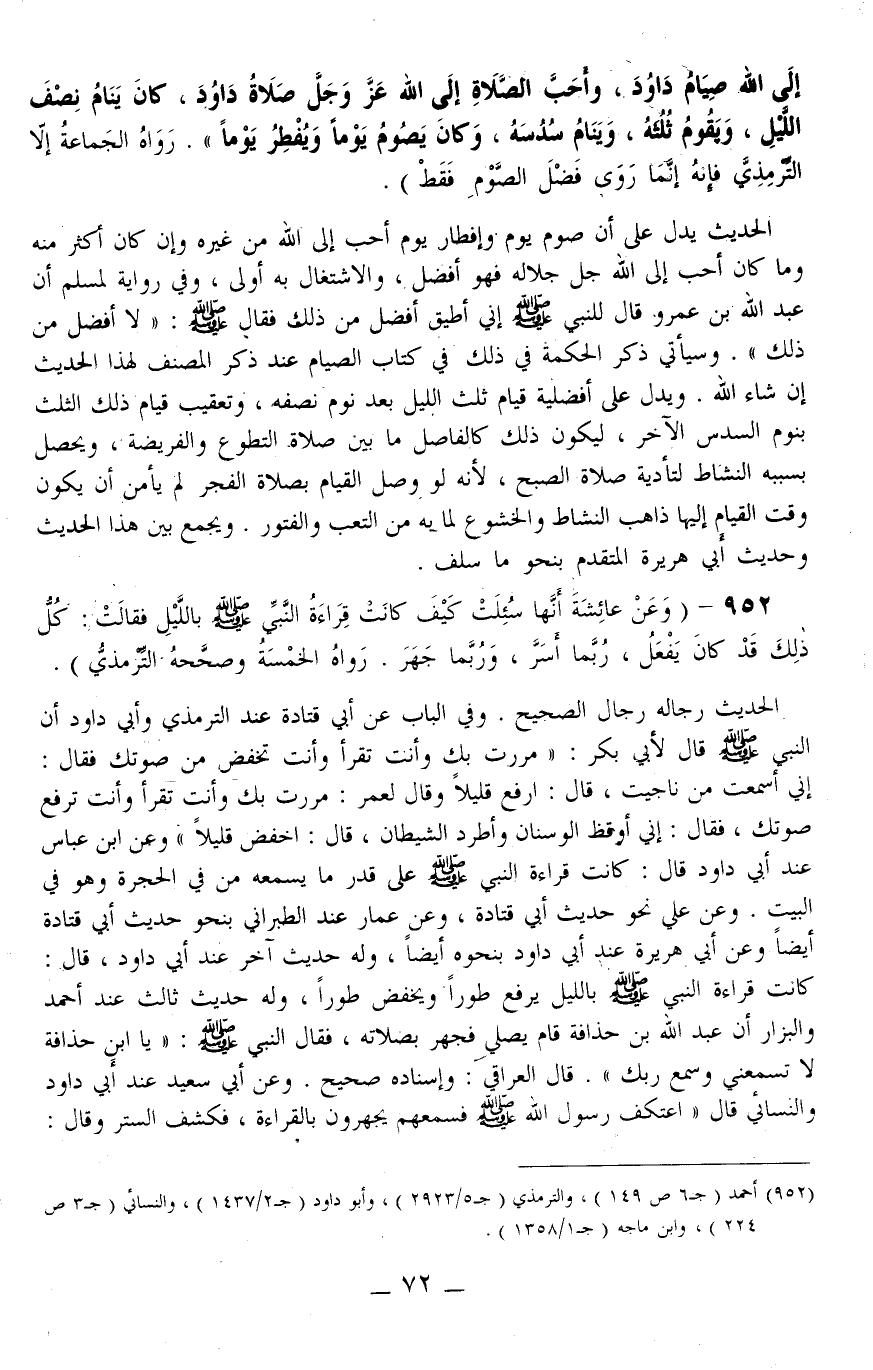 إلَى الله صِيَامُ دَاوُدَ ، وأَحَبَّ الصَّلَاةِ إلَى الله عَزَّ وَجَلَّ صَلَاةُ دَاوُدَ ، كانَ يَنَامُ نِصْفَ
اللَّيْلِ ، وَيَقُومُ ثُلُثَهُ ، وَيَنَامُ سُدُسَهُ ، وَكانَ يَصُومُ يَوْماً وَيُفْطِرُ يَوْماً » . رَوَاهُ الجَماعةُ إلّا
التِّرْمِذِيَّ فإنهُ إنَّمَا رَوَى فَضْلَ الصَّوْمِ فَقَطْ ) .
الحديث يدل على أن صوم يوم وإفطار يوم أحب إلى الله من غيره وإن كان أكثر منه
وما كان أحب إلى الله جل جلاله فهو أفضل ، والاشتغال به أولى ، وفي رواية لمسلم أن
عبد الله بن عمرو قال للنبي ﷺ إني أطيق أفضل من ذلك فقال ﷺ : « لا أفضل من
ذلك » . وسيأتي ذكر الحكمة في ذلك في كتاب الصيام عند ذكر المصنف لهذا الحديث
إن شاء الله . ويدل على أفضلية قيام ثلث الليل بعد نوم نصفه ، وتعقيب قيام ذلك الثلث
بنوم السدس الآخر ، ليكون ذلك كالفاصل ما بين صلاة التطوع والفريضة ، ويحصل
بسببه النشاط لتأدية صلاة الصبح ، لأنه لو وصل القيام بصلاة الفجر لم يأمن أن يكون
وقت القيام إليها ذاهب النشاط والخشوع لما به من التعب والفتور . ويجمع بين هذا الحديث
وحديث أبي هريرة المتقدم بنحو ما سلف .
٩٥٢ - ( وَعَنْ عائِشَةَ أَنَّها سُئِلَتْ كَيْفَ كانَتْ قِرَاءَةُ النَّبِيِّ ﷺ باللَّيْلِ فقالَتْ : كُلُّ
ذٰلِكَ قَدْ كانَ يَفْعَلُ ، رُبَّما أَسَرَّ ، وَرُبَّما جَهَرَ . رَواهُ الخَمْسَةُ وصحَّحهُ التِّرْمذيُّ ) .
الحديث رجاله رجال الصحيح . وفي الباب عن أبي قتادة عند الترمذي وأبي داود أن
النبي ﷺ قال لأبي بكر : « مررت بك وأنت تقرأ وأنت تخفض من صوتك فقال :
إني أسمعت من ناجيت ، قال : ارفع قليلاً وقال لعمر : مررت بك وأنت تقرأ وأنت ترفع
صوتك ، فقال : إني أوقظ الوسنان وأطرد الشيطان ، قال : اخفض قليلاً » وعن ابن عباس
عند أبي داود قال : كانت قراءة النبي ﷺ على قدر ما يسمعه من في الحجرة وهو في
البيت . وعن علي نحو حديث أبي قتادة ، وعن عمار عند الطبراني بنحو حديث أبي قتادة
أيضاً وعن أبي هريرة عند أبي داود بنحوه أيضاً ، وله حديث آخر عند أبي داود ، قال :
كانت قراءة النبي ﷺ بالليل يرفع طوراً ويخفض طوراً ، وله حديث ثالث عند أحمد
والبزار أن عبد الله بن حذافة قام يصلي فجهر بصلاته ، فقال النبي ﷺ : « يا ابن حذافة
لا تسمعني وسمع ربك » . قال العراقي : وإسناده صحيح . وعن أبي سعيد عند أبي داود
والنسائي قال « اعتكف رسول الله ﷺ فسمعهم يجهرون بالقراءة ، فكشف الستر وقال :
(٩٥٢) أحمد ( جـ٦ ص ١٤٩ ) ، والترمذي ( جـ٢٩٢٣/٥ ) ، وأبو داود ( جـ١٤٣٧/٢ ) ، والنسائي ( جـ٣ ص
٢٢٤ ) ، وابن ماجه ( جـ١٣٥٨/١ ) .
ـ ٧٢ ـ